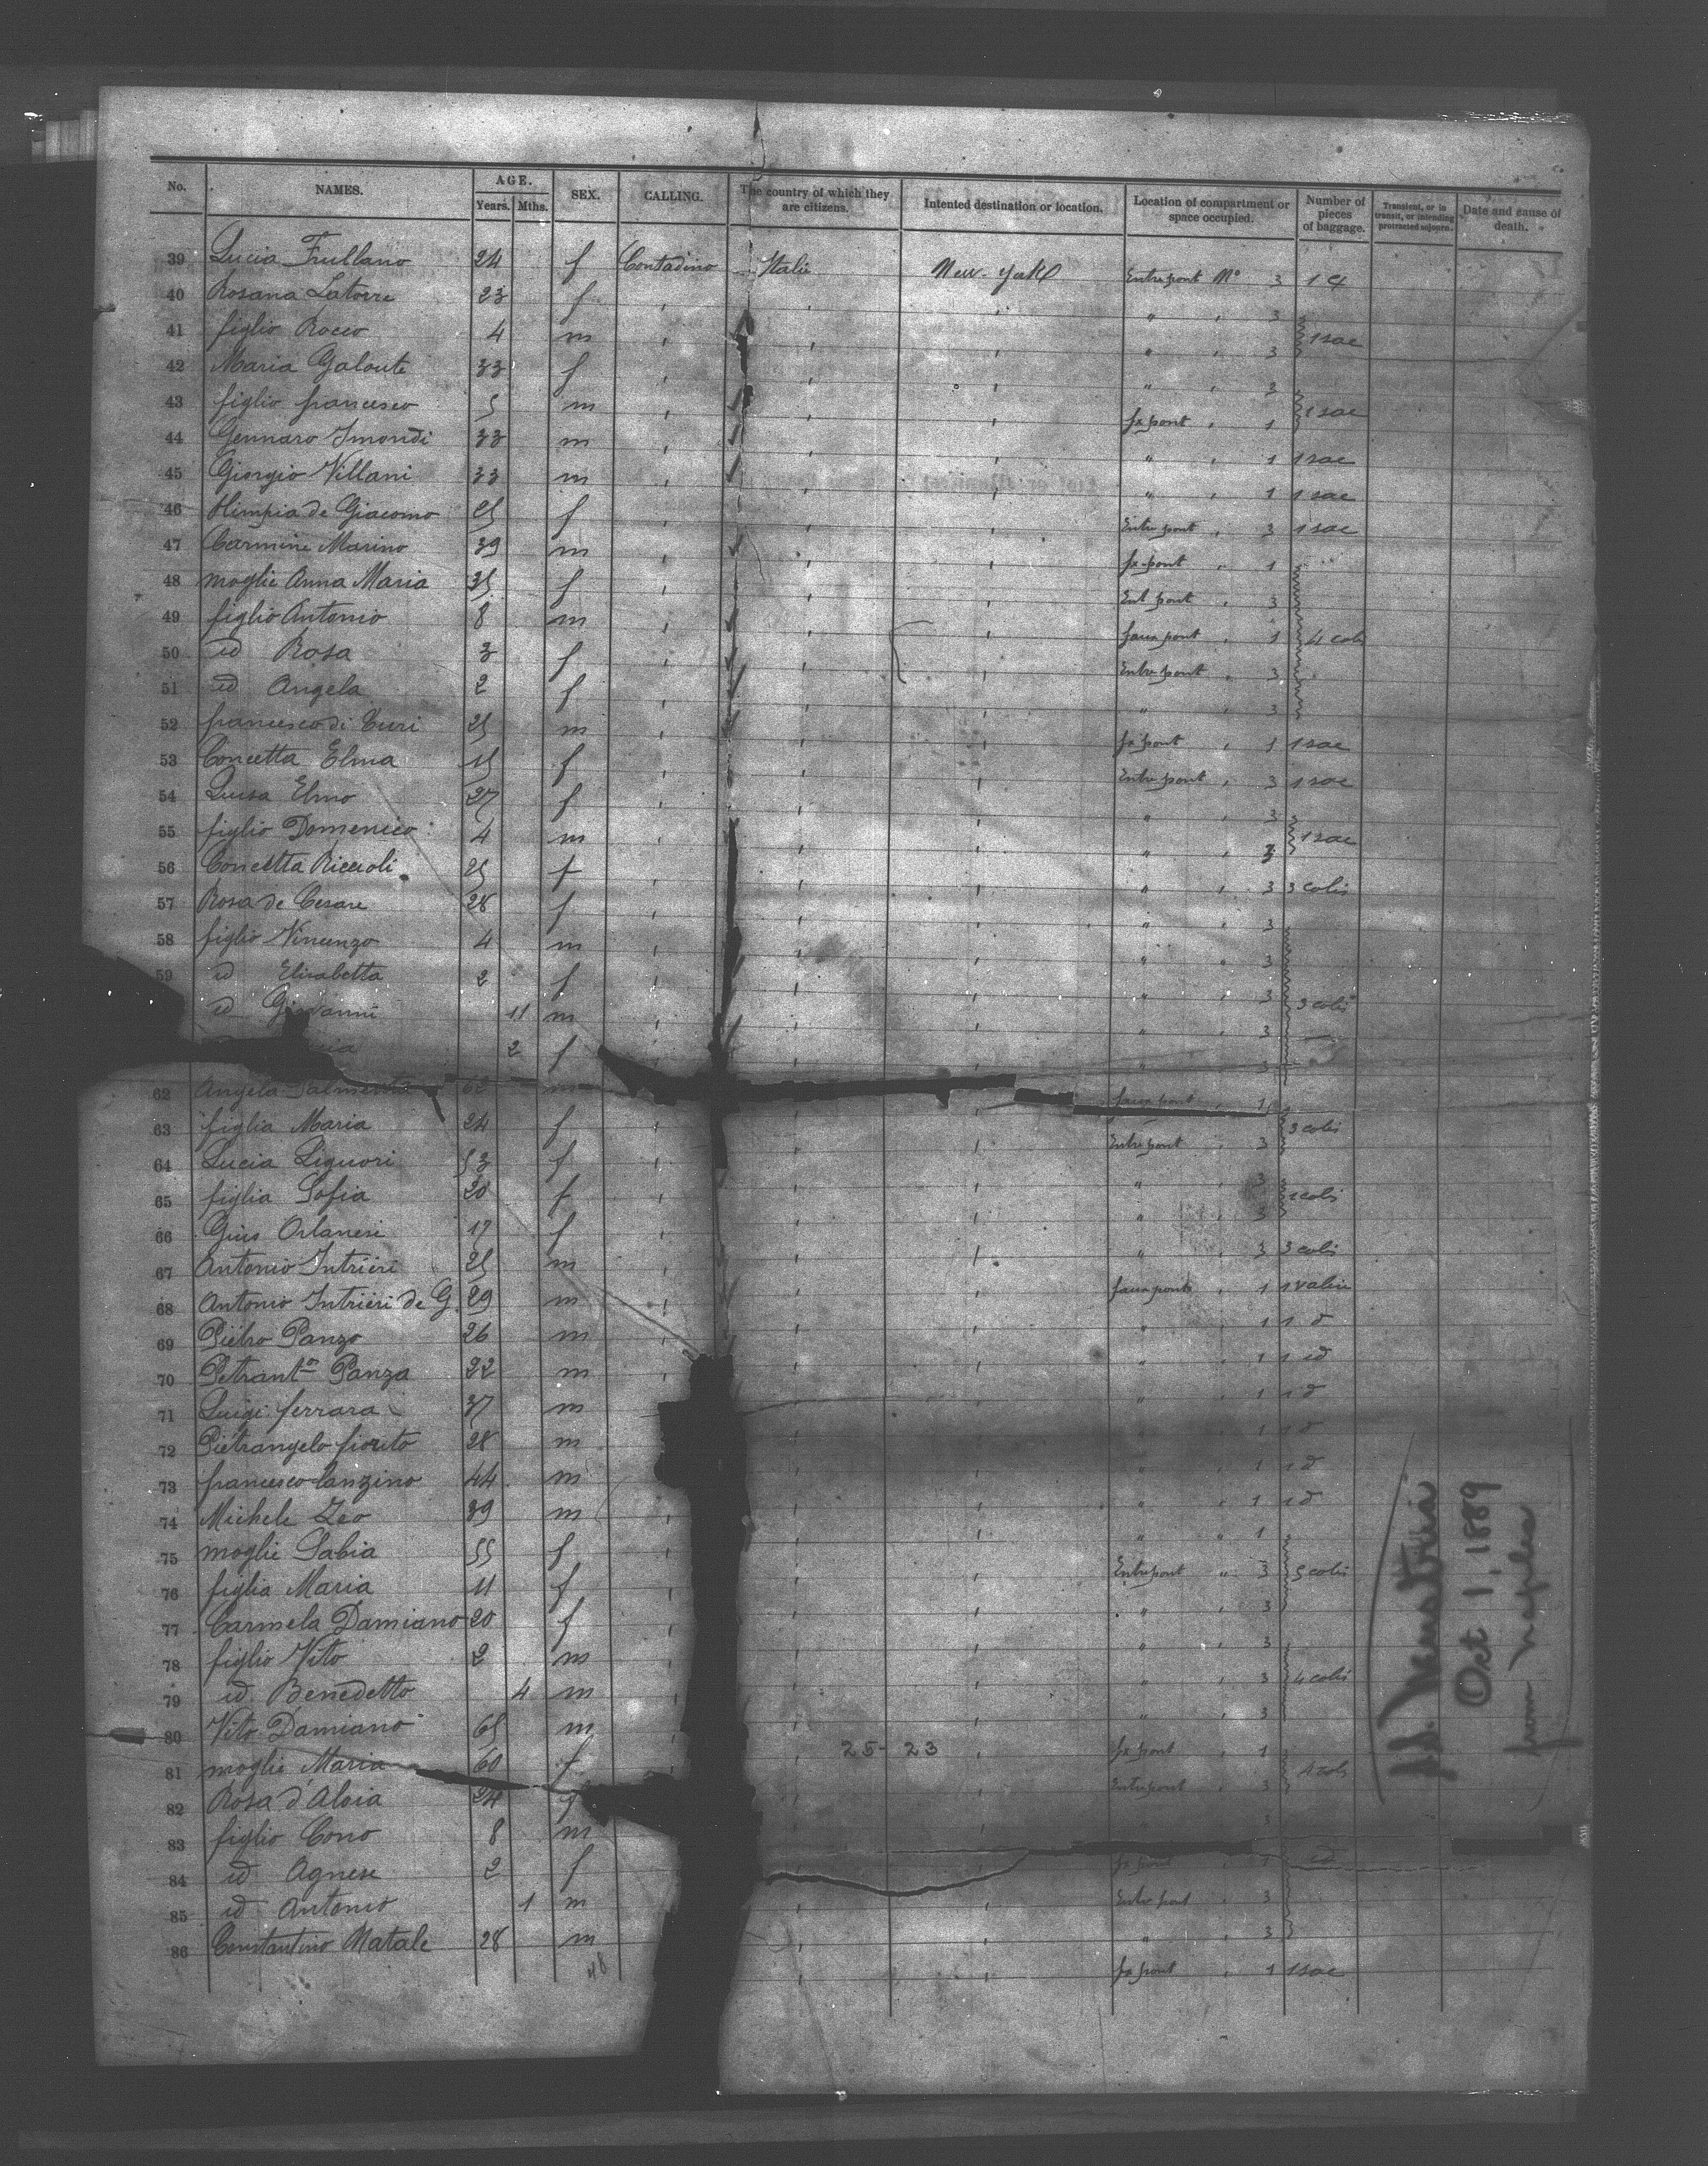 No. NAMES. AGE. Years. Mths. SEX. CALLING. The country of which they are citizens. Intented destination or location. Location of compartment or space occupied. Number of pieces of baggage. Transient, or in transit, or intending protracted sojourn. Date and cause of death.
39 Lucia Frullano 24 f Contadino Italie New-York Entrepont No 3 1
40 Rosana Latorre 23 f " 3
41 figlio Rocco 4 m " 3 1 sac
42 Maria Galoute 33 f "
43 figlio francesco 5 m fx pont 1 1 sac
44 Gennaro Imondi 33 m " 1 1 sac
45 Giorgio Villani 33 m " 1 1 sac
46 Olimpia de Giacomo 25 f Entrepont 3 1 sac
47 Carmine Marino 39 m fx pont 1
48 moglie Anna Maria 35 f Ent pont 3
49 figlio Antonio 8 m faux pont 1 4 colis
50 id Rosa 3 f Entrepont 3
51 id Angela 2 f " 3
52 francesco di Turi 25 m fx pont 1 1 sac
53 Concetta Elma 15 f Entrepont 3 1 sac
54 Luisa Elmo 27 f " 3
55 figlio Domenico 4 m " 3 1 sac
56 Concetta Riccioli 25 f " 3 3 colis
57 Rosa de Cesare 28 f " 3
58 figlio Vincenzo 4 m " 3
59 id Elisabetta 2 f " 3 3 colis
id Giovanni 11 m " 3
2 f " 3
62 Angela m faux pont 1
63 figlia Maria 24 f Entrepont 3 3 colis
64 Lucia Liguori 53 f " 3
65 figlia Sofia 20 f " 3 colis
66 Gius Orlanesi 17 f " 3 3 colis
67 Antonio Intrieri 25 m faux ponts 1 1 valise
68 Antonio Intrieri de G. 29 m " 1 1 d
69 Pietro Panzo 26 m " 1 1 id
70 Petrant Panza 22 m " 1 1 d
71 Luigi ferrara 37 m " 1 1 d
72 Pietrangelo fiorito 28 m " 1 1 d
73 francesco Canzino 44 m " 1 1 d
74 Michele Leo 39 m " 1
75 moglie Sabia 55 f Entrepont " 3 5 colis
76 figlia Maria 11 f " 3
77 Carmela Damiano 20 f " 3
78 figlio Vito 2 m " 3 4 colis
79 id Benedetto 4 m " 3
80 Vito Damiano 65 m fx pont 1
81 moglie Maria 60 f Entrepont 3 4 colis
82 Rosa d'Aloia 24 f 3
83 figlio Cono 8 m fx pont 1 id
84 id Agnese 2 f Entrepont 3
85 id Antonio 1 m " 3
86 Constantino Natale 28 m fx pont 1 1 sac
48
25-23
SS. Neustria
Oct 1, 1889
from Naples